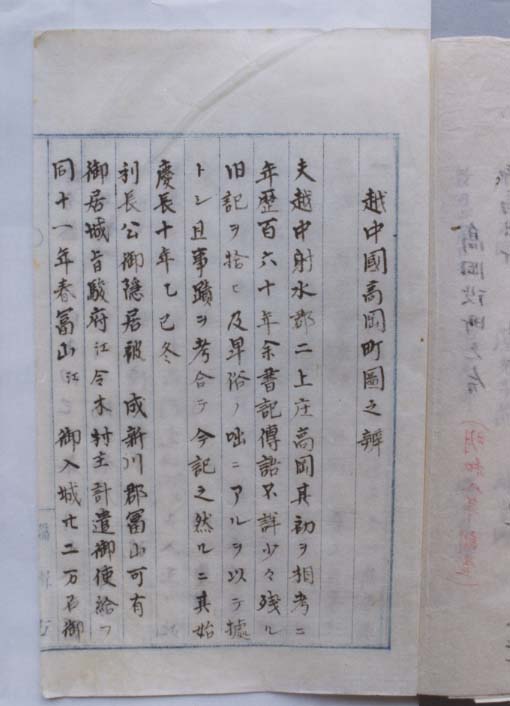 越中國高岡町圖之辨
夫越中射水郡二上庄高岡其初ヲ相考ニ
年歴百六十年余書記傳語不詳少々残ル
旧記ヲ拾ヒ及卑俗ノ咄ニアルヲ以テ據
トシ且事蹟ヲ考合テ今記之然ルニ其始
慶長十年乙巳冬
利長公御隠居被 成新川郡冨山可有
御居城旨駿府江令木村主計遣御使給フ
同十一年春冨山江 御入城廿二万石御